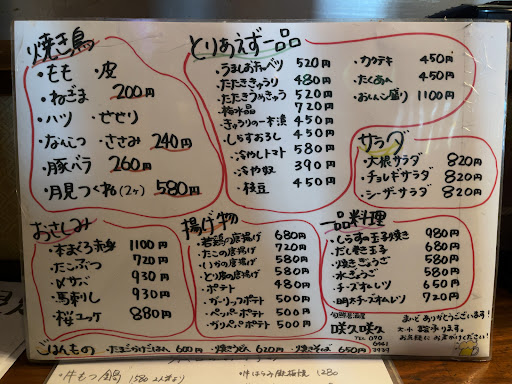 焼き鳥
・もも ・皮
・ねごま 200円
・ハツ ・せせり
・なんこつ ・ささみ 240円
・豚バラ 260円
・月見つくね(2ヶ) 580円
とりあえず一品
・うましおキャベツ 520円
・たたききゅうり 480円
・たたきうめきゅう 520円
・梅水晶 720円
・きゅうりの一本漬 450円
・しらすおろし 450円
・冷やしトマト 580円
・冷や奴 390円
・枝豆 450円
・カクテキ 450円
・たくあん 450円
・おしんこ盛り 1100円
サラダ
・大根サラダ 820円
・チョレギサラダ 820円
・シーザーサラダ 820円
おさしみ
・本まぐろ赤身 1100円
・たこぶつ 720円
・〆サバ 930円
・馬刺し 930円
・桜ユッケ 880円
揚げ物
・若鶏の唐揚げ 680円
・たこの唐揚げ 720円
・いかの唐揚げ 580円
・とり皮の唐揚げ 580円
・ポテト 480円
・ガーリックポテト 500円
・ペッパーポテト 500円
・ガリペッパポテト 500円
一品料理
・しらすの玉子焼き 980円
・だし巻き玉子 680円
・焼きぎょうざ 580円
・水ぎょうざ 580円
・チーズオムレツ 650円
・明太チーズオムレツ 720円
まいど ありがとうございます!
大小 宴会承ります。
お気軽に お声がけください!
旬鮮居酒屋
咲久咲久
TEL 070
6461
3939
ごはんもの ・たまごかけごはん 600円 ・焼きうどん 620円 ・焼きそば 650円
・牛もつ鍋 1580 2人前より
・牛はらみ鉄板焼 1280